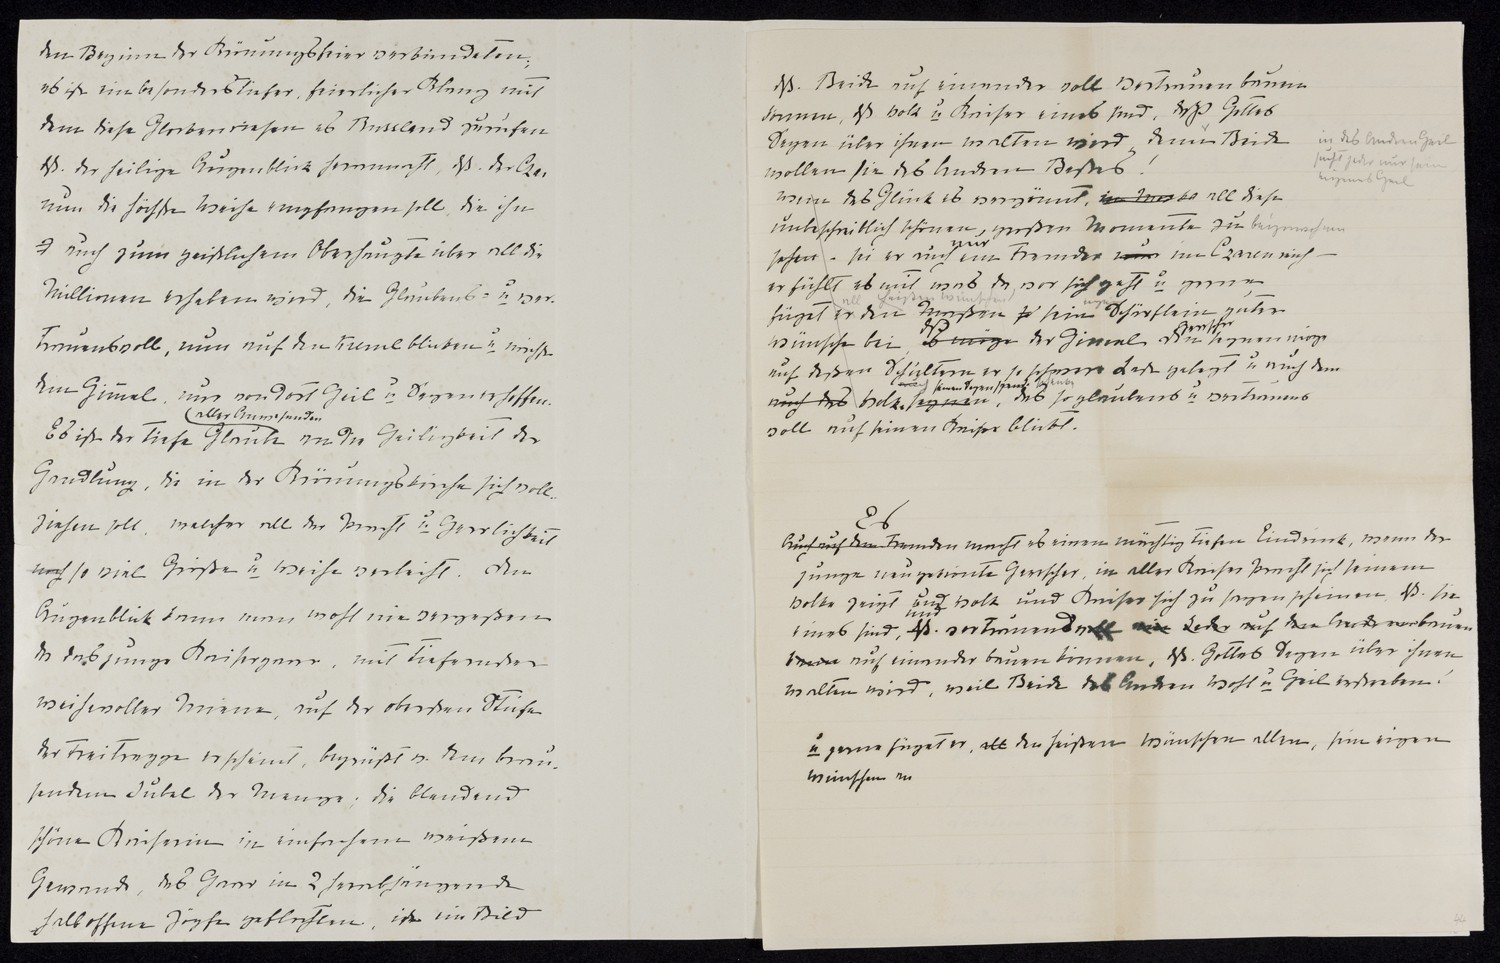 den Beginn der Krönungsfeier verkündeten;
es ist ein besonders tiefer, feierlicher Klang mit
dem diese Glockenriesen es Russland zurufen
dß. der heilige Augenblick herannaht, dß. der Czar
nun die höchste Weihe empfangen soll, die ihn
auch zum geistlichem Oberhaupte über all die
Millionen erheben wird, die Glaubens- u ver-
trauensvoll, nun auf den Kreml blicken u nächst
dem Himel, nur von dort Heil u Segen erhoffen.
(aller Anwesenden
Es ist der tiefe Glaube an die Heiligkeit der
Handlung, die in der Krönungskirche sich voll-
ziehen soll, welcher all der Pracht u Herrlichkeit
noch so viel Größe u Weihe verleiht. Den
Augenblick kann man wohl nie vergeßen
da das junge Kaiserpaar, mit tiefernster
weihevoller Miene, auf der obersten Stufe
der Freitreppe erscheint, begrüßt v. dem brau-
sendem Jubel der Menge. die blendend
schöne Kaiserin in einfachem weißem
Gewande, das Haar in 2 herabhängende
halboffene Zöpfe geflochten, ist ein Bild
dß. Beide auf einander voll Vertrauen bauen
können, dß Volk u Kaiser eines sind, daß Gottes
Segen über ihnen walten wird, denn Beide
wollen sie des Andern Bestes!
in des Andern Heil
sucht jeder nur sein
eigenes Heil
wem das Glück es vergönnt, all diese
unbeschreiblich schönen, großen Momente zu beizuwohnen
sehen – sei er auch nur ein Fremder nur im Czarenreich –
er fühlt es mit was da vor sich geht u gerne
all heißen Wünschen
füget er den sein Schärflein guter
eigen
Wünsche bei, daß es möge der Himel den Herrscher segnen möge
auf deßen Schultern er so schwere Last gelegt u auch dem
auch des Volk segnen, das so glaubens u vertrauens
voll auf seinen Kaiser blickt.
Es
Auch auf den Fremden macht es einen mächtig tiefen Eindruck, wenn der
junge neugekrönte Herrscher, in aller Kaiser Pracht sich seinem
Volke zeigt und Volk und Kaiser sich zu sagen scheinen, dß. sie
und
eines sind, dß. vertrauensvoll ein Jeder auf den Andern bauen
auf einander bauen können, dß. Gottes Segen über ihnen
walten wird, weil Beide des Andern Wohl u Heil erstreben!
u gerne füget er, all den heißen Wünschen allen, sein eigen
wünschen an